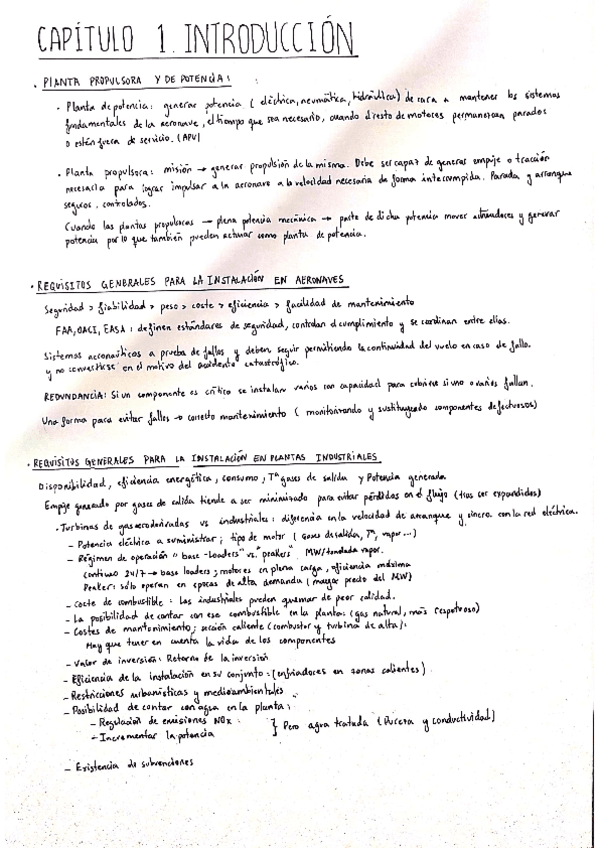 CAPÍTULO 1. INTRODUCCIÓN
· PLANTA PROPULSORA Y DE POTENCIA:
· Planta de potencia: generar potencia (eléctrica, neumática, hidráulica) de cara a mantener los sistemas
fundamentales de la aeronave, el tiempo que sea necesario, cuando el resto de motores permanezcan parados
o están fuera de servicio. (APU)
· Planta propulsora: misión → generar propulsión de la misma. Debe ser capaz de generar empuje o tracción
necesaria para lograr impulsar a la aeronave a la velocidad necesaria de forma interrumpida. Parada y arranque
seguros, controlados.
Cuando las plantas propulsoras → plena potencia mecánica → parte de dicha potencia mover alternadores y generar
potencia por lo que también pueden actuar como planta de potencia.
· REQUISITOS GENERALES PARA LA INSTALACIÓN EN AERONAVES
Seguridad > fiabilidad > peso > coste > eficiencia > facilidad de mantenimiento
FAA, OACI, EASA: definen estándares de seguridad, controlan el cumplimiento y se coordinan entre ellas.
Sistemas aeronaúticos a prueba de fallos y deben seguir permitiendo la continuidad del vuelo en caso de fallo.
y no convertirse en el motivo del accidente catastrófico.
REDUNDANCIA: Si un componente es crítico se instalan varios con capacidad para cubrirse si uno o varios fallan.
Una forma para evitar fallos → correcto mantenimiento (monitorizando y sustituyendo componentes defectuosos)
· REQUISITOS GENERALES PARA LA INSTALACIÓN EN PLANTAS INDUSTRIALES
Disponibilidad, eficiencia energética, consumo, Tª gases de salida y Potencia generada
Empuje generado por gases de salida tiende a ser minimizado para evitar pérdidas en el flujo (tras ser expandidos)
· Turbinas de gas aeroderivadas vs industriales: diferencia en la velocidad de arranque y sincro. con la red eléctrica.
- Potencia eléctrica a suministrar; tipo de motor (gases de salida, Tª, vapor...)
- Régimen de operación "base-loaders" vs. "peakers" MW/tonelada vapor.
continuo 24/7 → base loaders; motores en plena carga, eficiencia máxima
Peaker: sólo operan en épocas de alta demanda (mayor precio del MW)
- Coste de combustible: Las industriales pueden quemar de peor calidad.
- La posibilidad de contar con ese combustible en la planta: (gas natural, más respetuoso)
- Costes de mantenimiento; sección caliente (combustor y turbina de alta):
Hay que tener en cuenta la vida de los componentes
- Valor de inversión: Retorno de la inversión
- Eficiencia de la instalación en su conjunto: (enfriadores en zonas calientes)
- Restricciones urbanísticas y medioambientales
- Posibilidad de contar con agua en la planta:
- Regulación de emisiones NOx: } Pero agua tratada (Pureza y conductividad)
- Incrementar la potencia
- Existencia de subvenciones